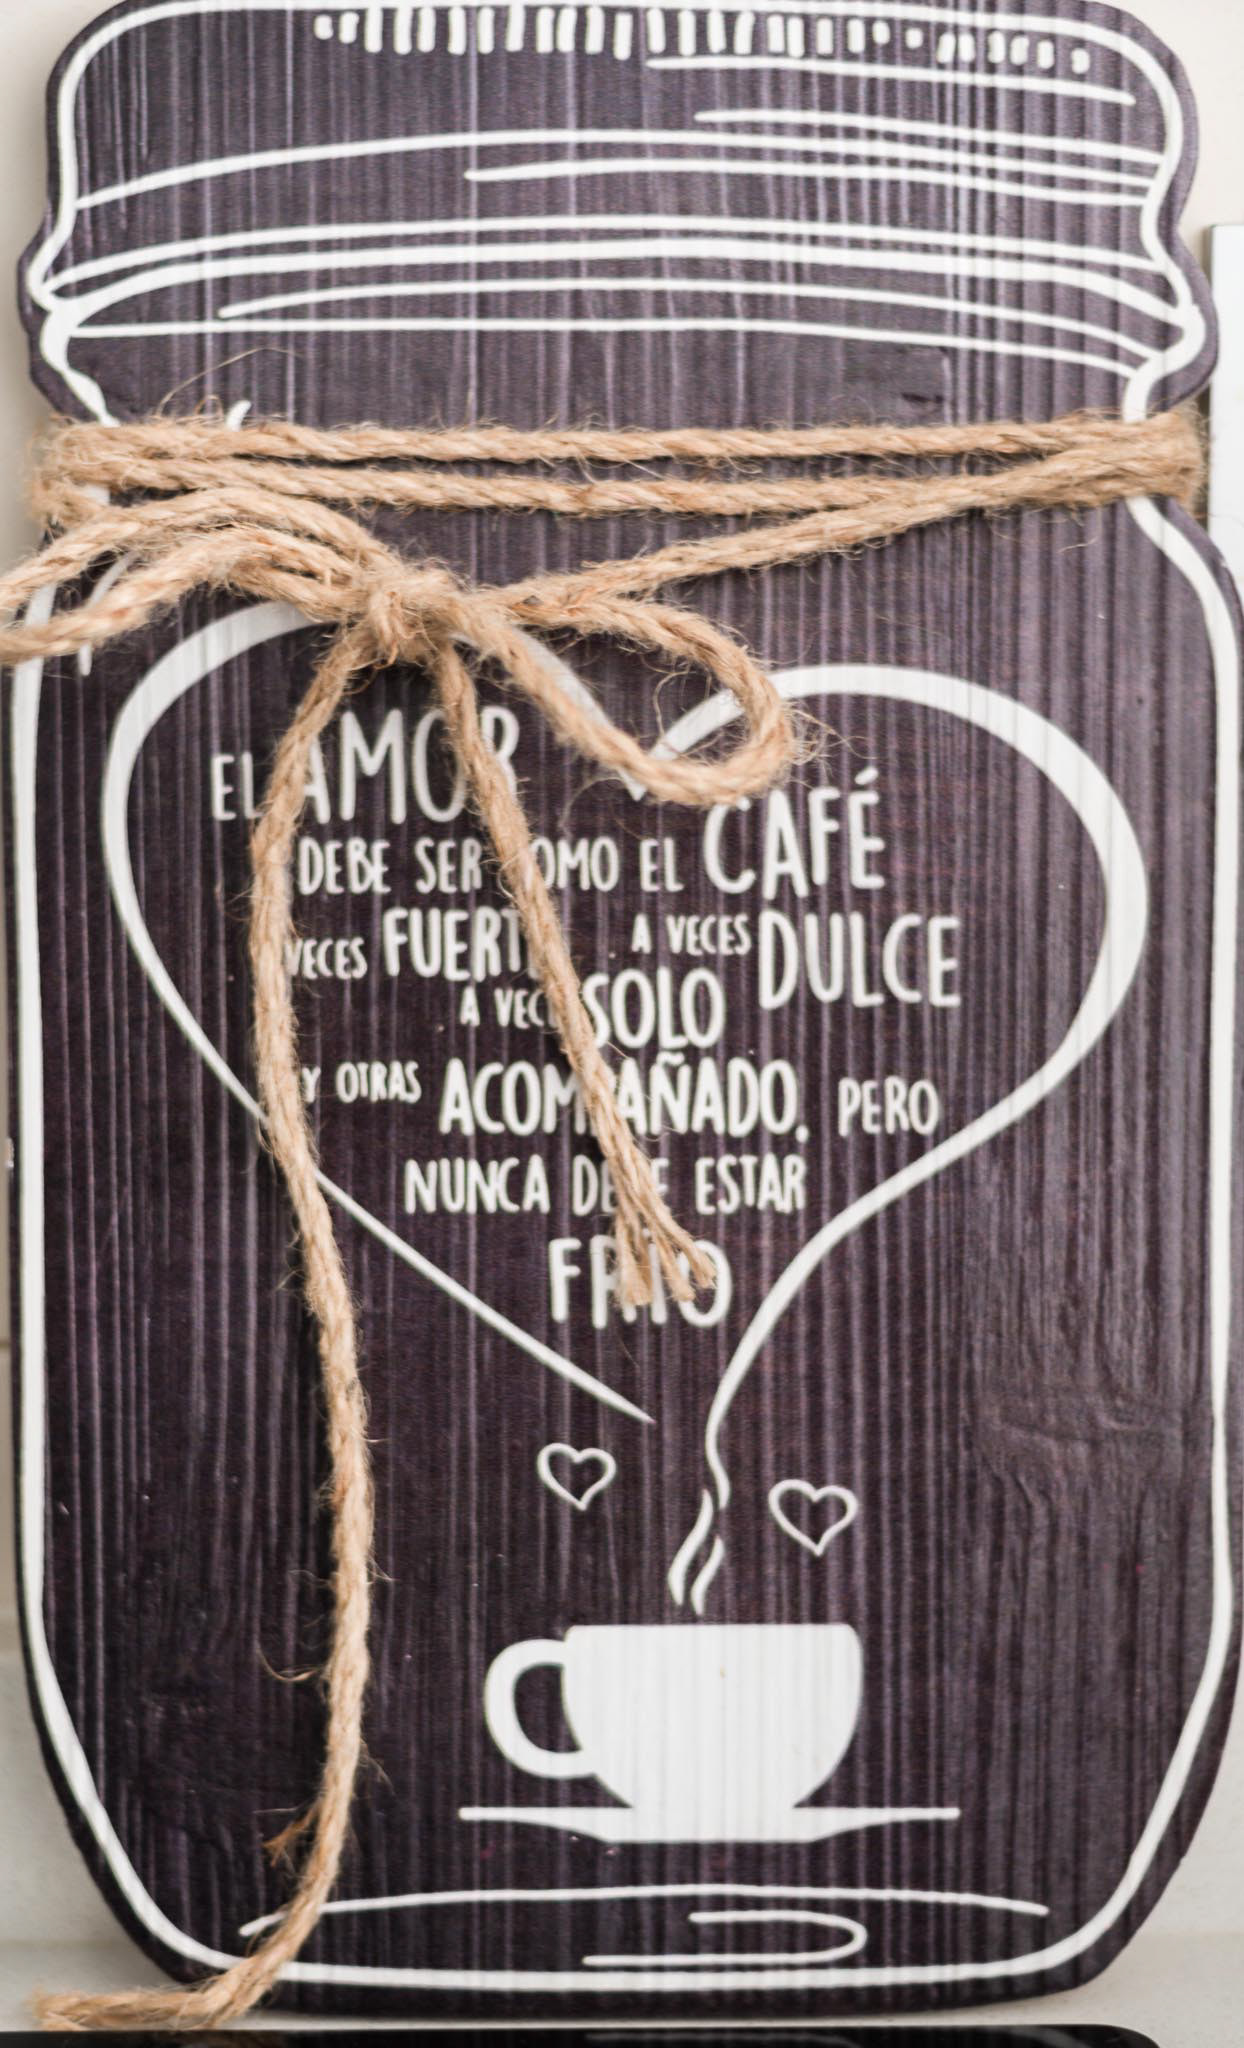 EL AMOR
DEBE SER COMO EL CAFÉ
VECES FUERTE A VECES DULCE
A VECES SOLO
Y OTRAS ACOMPAÑADO, PERO
NUNCA DEBE ESTAR
FRÍO